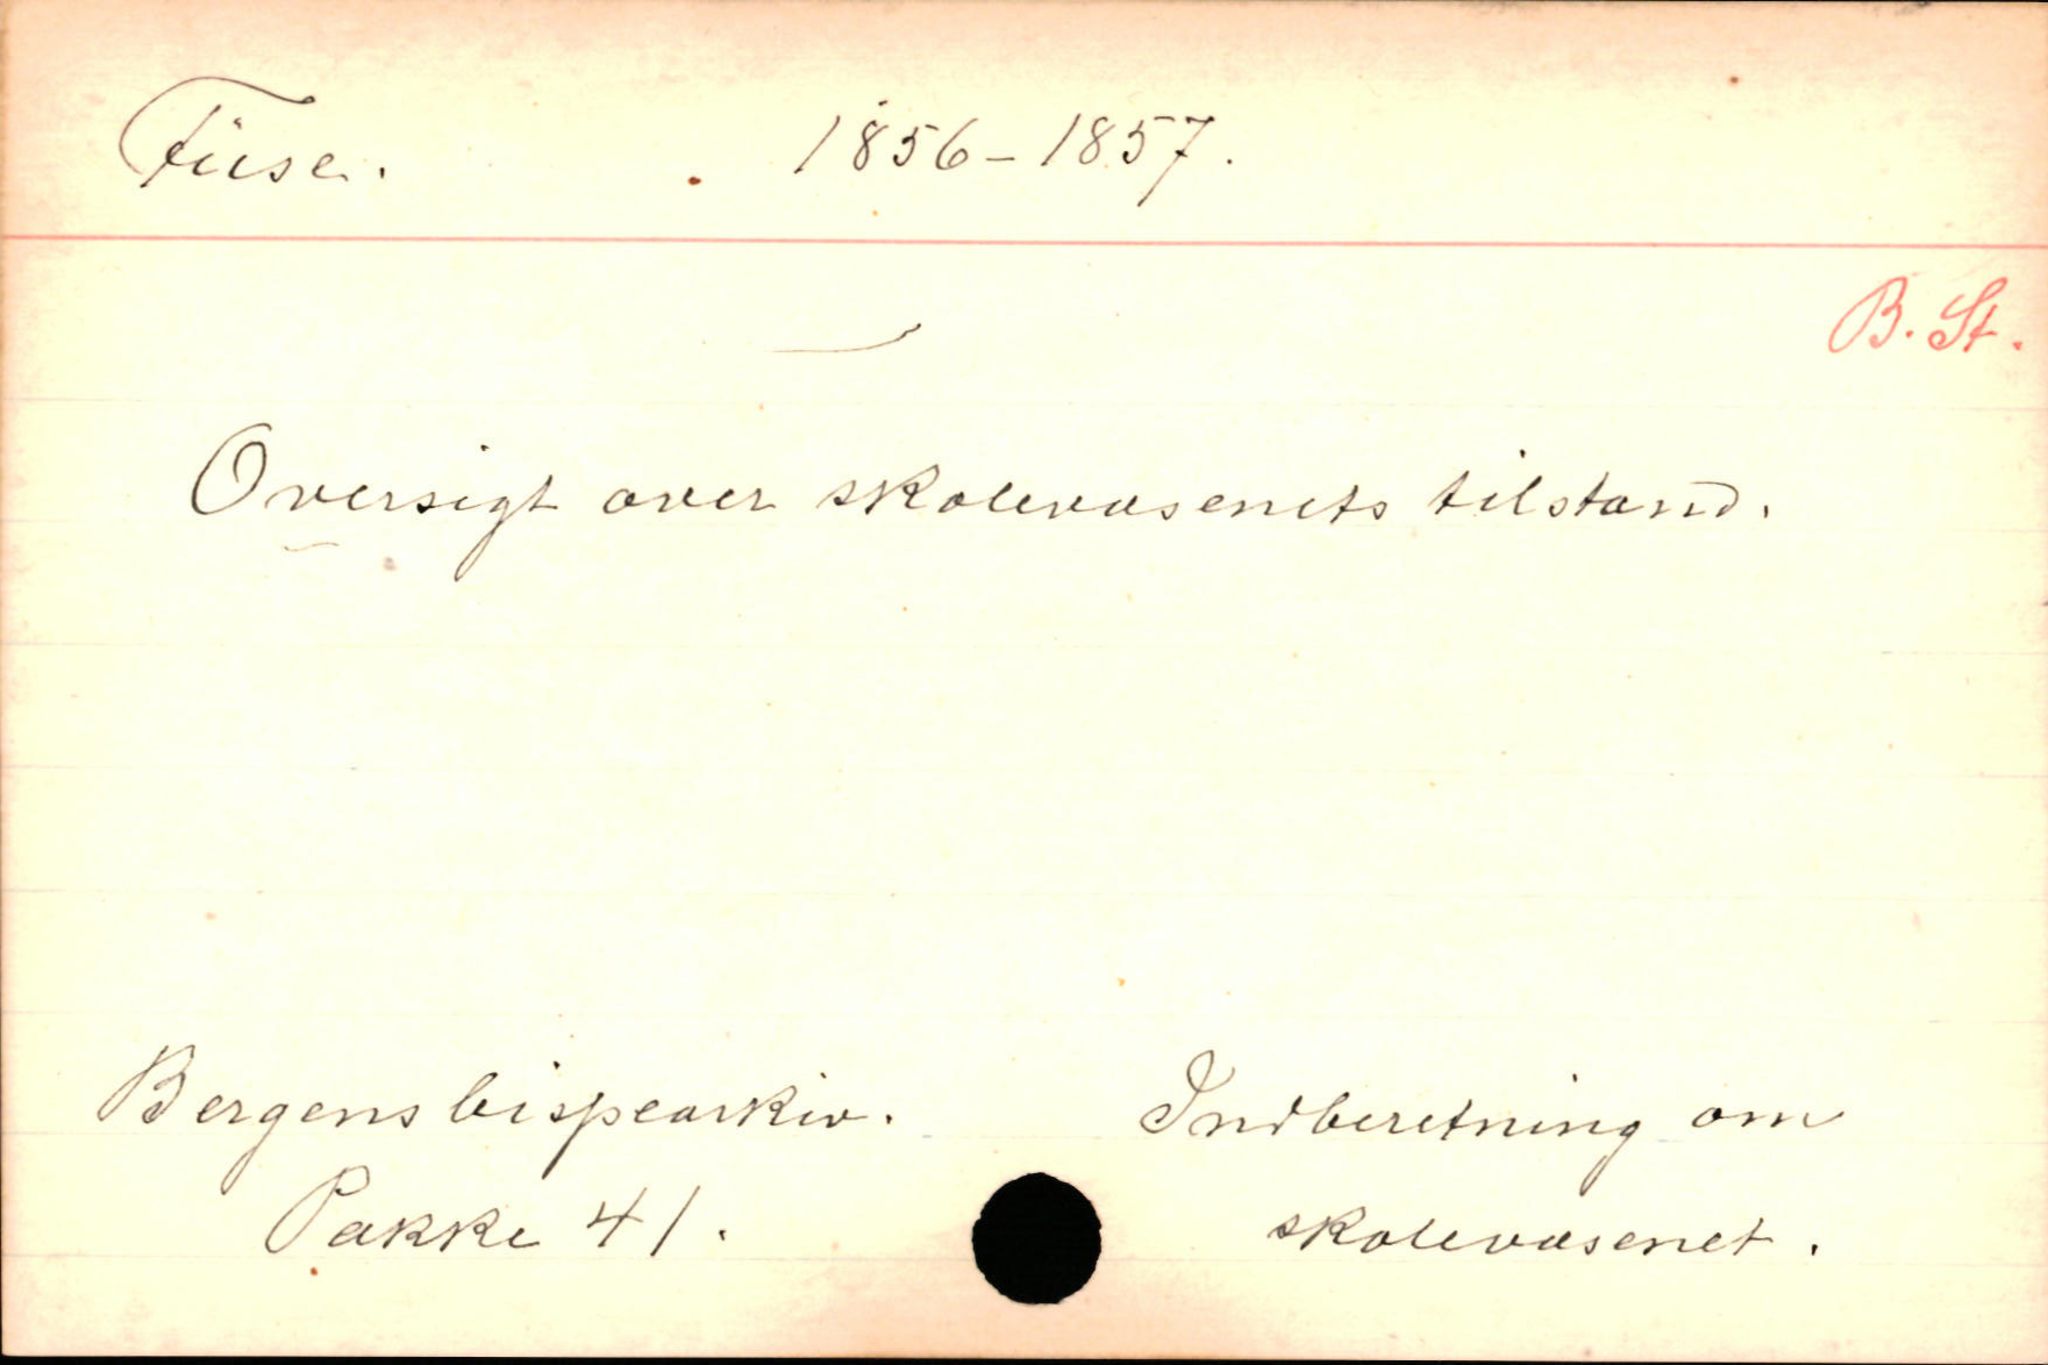 Füse. 1856-1857.
B. St.
Oversigt over skolevæsenets tilstand.
Bergens bispearkiv. Indberetning om
Pakke 41. skolevæsenet.